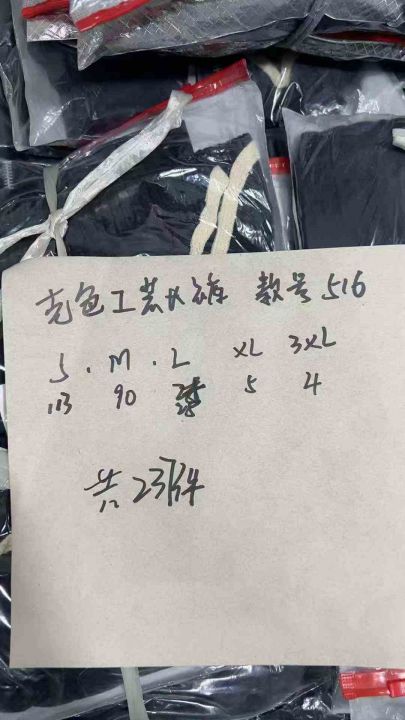 色工装长裤 款号516
S . M . L XL 3XL
113 90 25 5 4
共237件